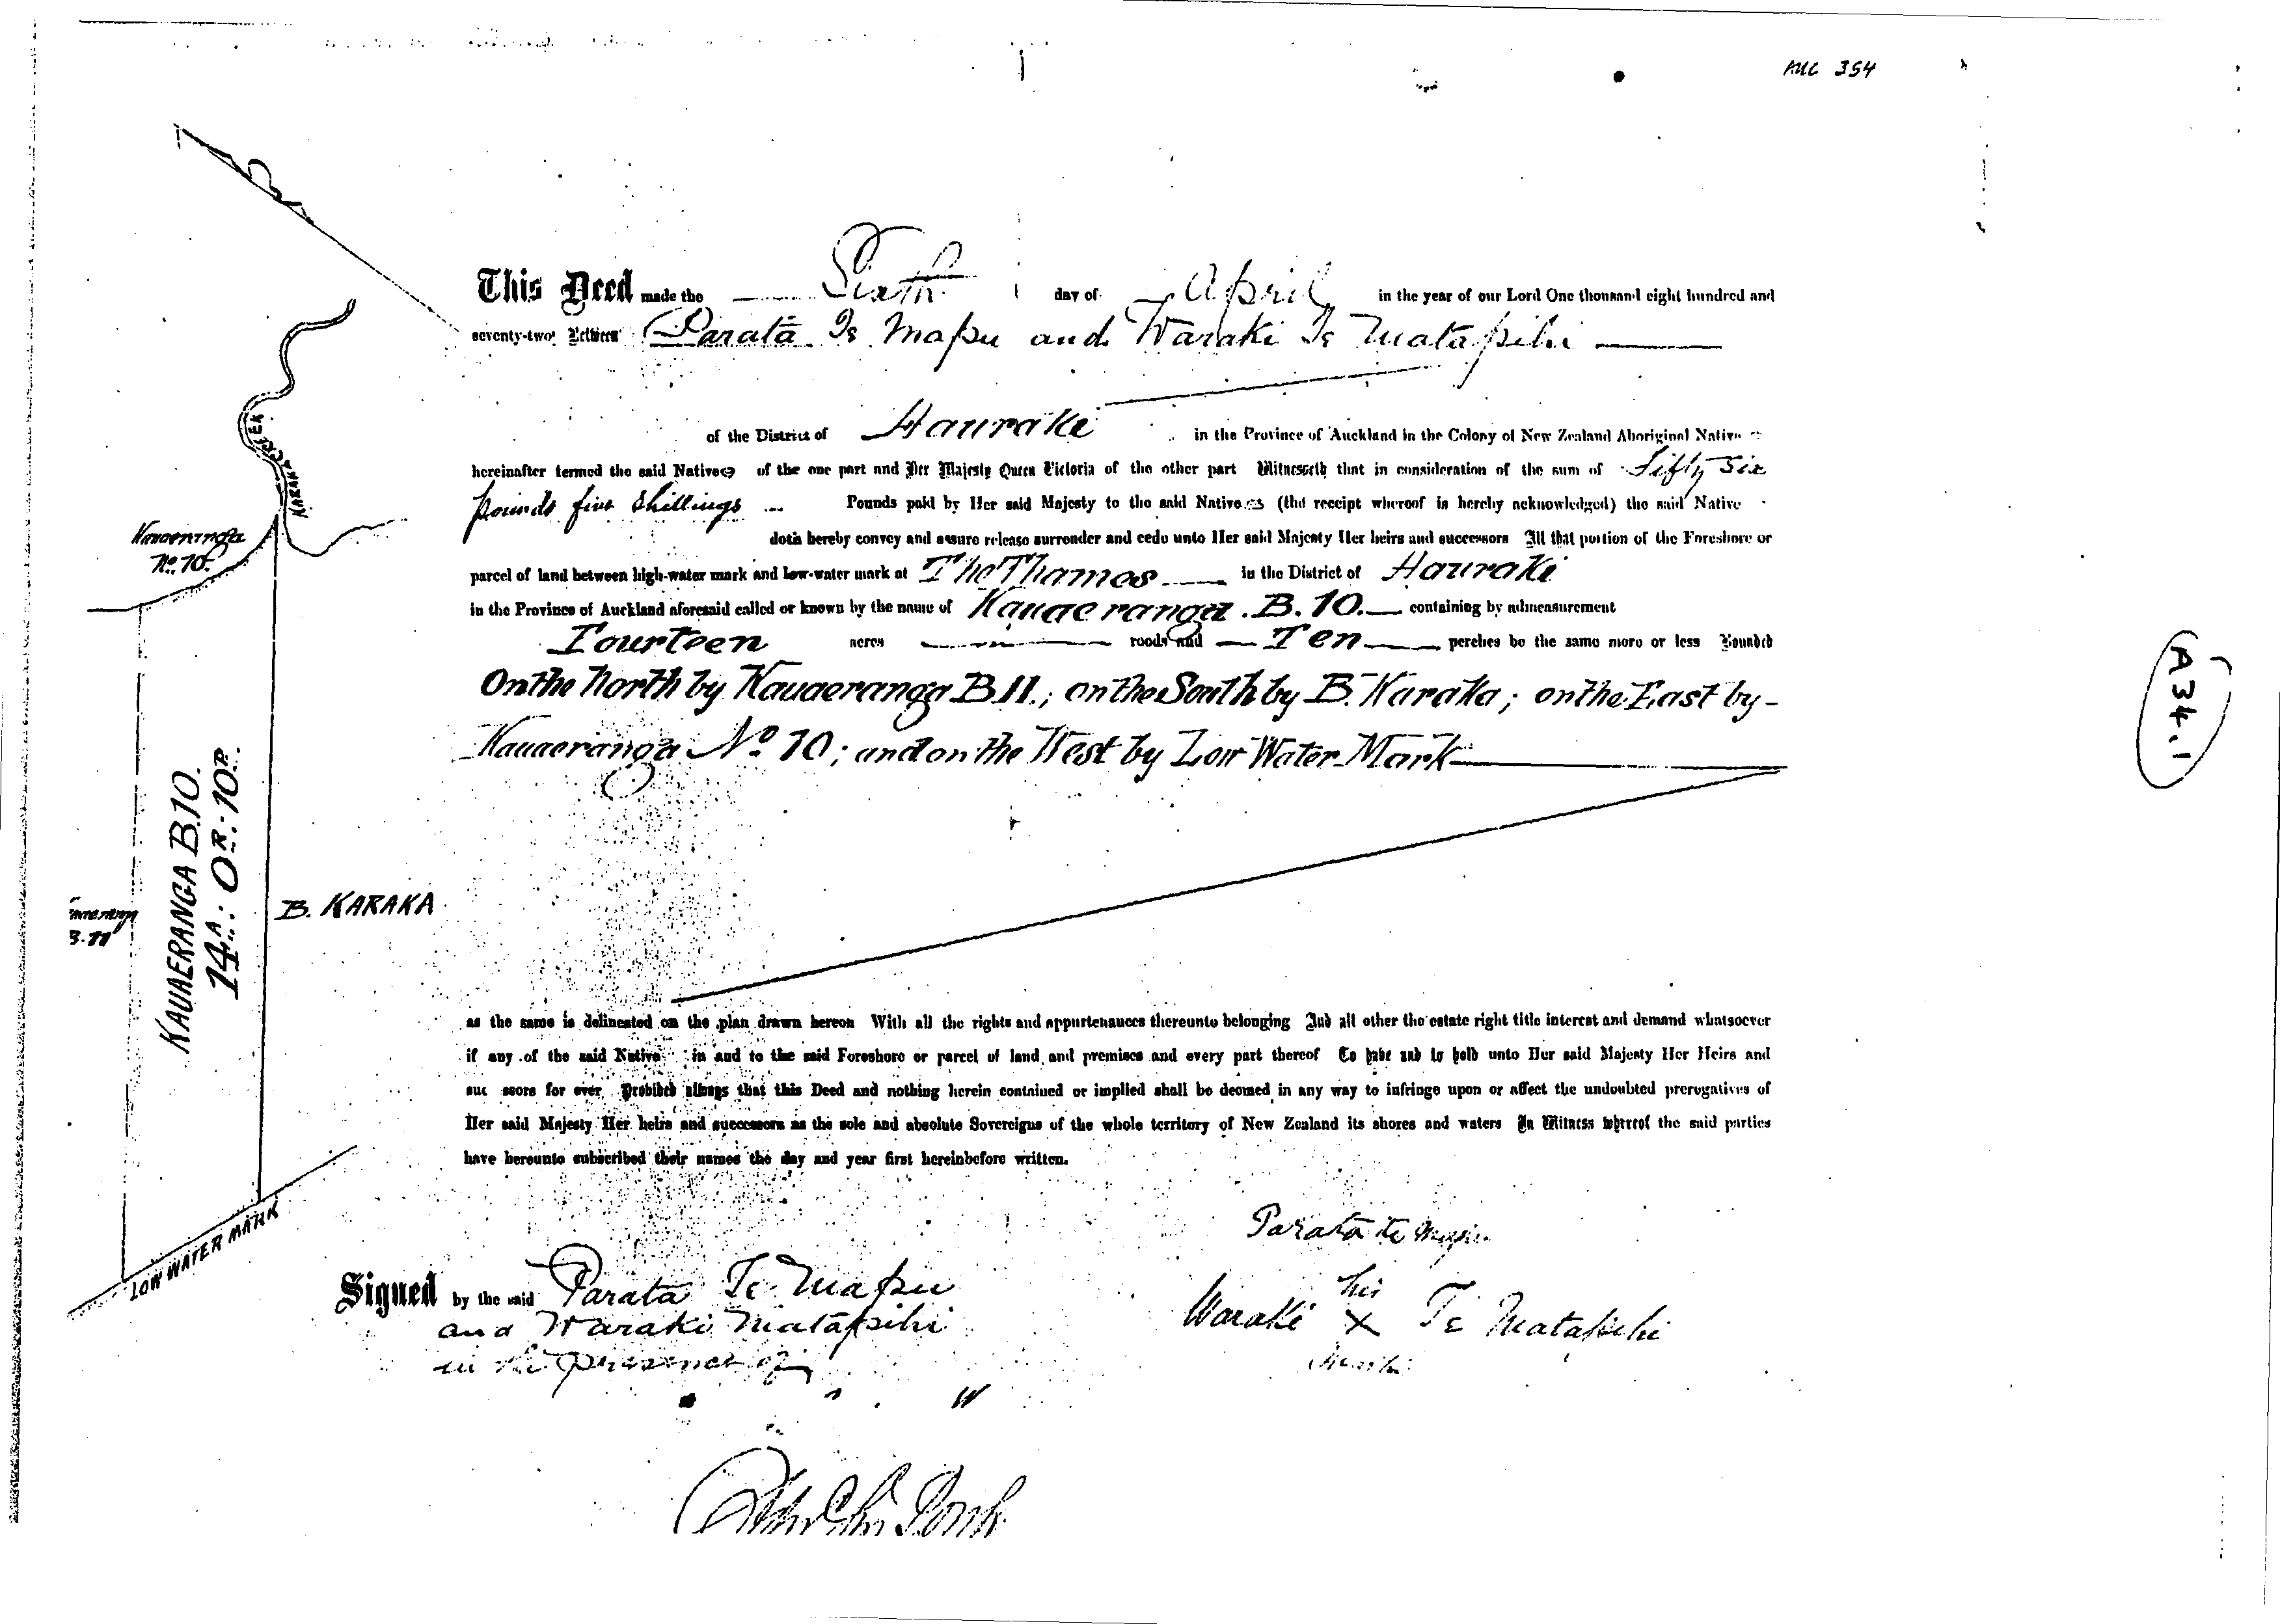 AUC 354
This Deed made the Sixth day of April in the year of our Lord One thousand eight hundred and
seventy-two Between Parata Te Mapu and Waraki Te Matapihi
of the District of Hauraki in the Province of Auckland in the Colony of New Zealand Aboriginal Native
hereinafter termed the said Natives of the one part and Her Majesty Queen Victoria of the other part Witnesseth that in consideration of the sum of Fifty six
pounds five shillings Pounds paid by Her said Majesty to the said Natives (the receipt whereof is hereby acknowledged) the said Native
doth hereby convey and assure release surrender and cede unto Her said Majesty Her heirs and successors All that portion of the Foreshore or
parcel of land between high-water mark and low-water mark at The Thames in the District of Hauraki
in the Province of Auckland aforesaid called or known by the name of Kauaeranga B.10. containing by admeasurement
Fourteen acres roods and Ten perches be the same more or less Bounded
On the North by Kauaeranga B.11.; on the South by B. Karaka; on the East by
Kauaeranga No 10; and on the West by Low Water Mark
as the same is delineated on the plan drawn hereon With all the rights and appurtenances thereunto belonging And all other the estate right title interest and demand whatsoever
if any of the said Native in and to the said Foreshore or parcel of land and premises and every part thereof To have and to hold unto Her said Majesty Her Heirs and
suc ssors for ever Provided always that this Deed and nothing herein contained or implied shall be deemed in any way to infringe upon or affect the undoubted prerogatives of
Her said Majesty Her heirs and successors as the sole and absolute Sovereigns of the whole territory of New Zealand its shores and waters In Witness whereof the said parties
have hereunto subscribed their names the day and year first hereinbefore written.
Parata te Mapu
Signed by the said Parata Te Mapu
and Waraki Matapihi
in the presence of
his
Waraki X Te Matapihi
mark
KARAKA CREEK
Kauaeranga
No. 10.
KAUAERANGA B.10.
14A: 0R: 10P.
B. KARAKA
B.11
LOW WATER MARK
A34.1